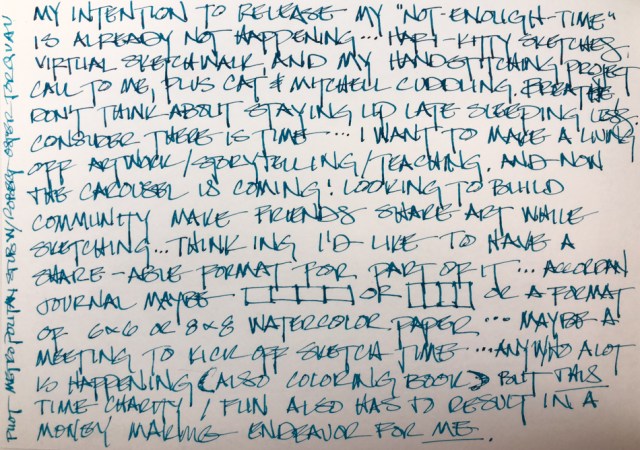 MY INTENTION TO RELEASE MY "NOT-ENOUGH-TIME"
IS ALREADY NOT HAPPENING... HARI-KITTY SKETCHES,
VIRTUAL SKETCHWALK, AND MY HANDSTITCHING PROJECT
CALL TO ME, PLUS CAT & MITCHELL CUDDLING. BREATHE
DON'T THINK ABOUT STAYING UP LATE SLEEPING LESS.
CONSIDER THERE IS TIME... I WANT TO MAKE A LIVING
OFF ARTWORK/STORYTELLING/TEACHING. AND NOW
THE CAROUSEL IS COMING! LOOKING TO BUILD
COMMUNITY MAKE FRIENDS SHARE ART WHILE
SKETCHING... THINKING I'D LIKE TO HAVE A
SHARE-ABLE FORMAT FOR PART OF IT... ACCORDIAN
JOURNAL MAYBE OR OR A FORMAT
OF 6x6 OR 8x8 WATERCOLOR PAPER... MAYBE A
MEETING TO KICK OFF SKETCH TIME... ANYWHO A LOT
IS HAPPENING (ALSO COLORING BOOK) BUT THIS
TIME CHARITY/FUN ALSO HAS TO RESULT IN A
MONEY MAKING ENDEAVOR FOR ME.
PILOT METROPOLITAN STUB W/ROBERT OSTER TORQUAY